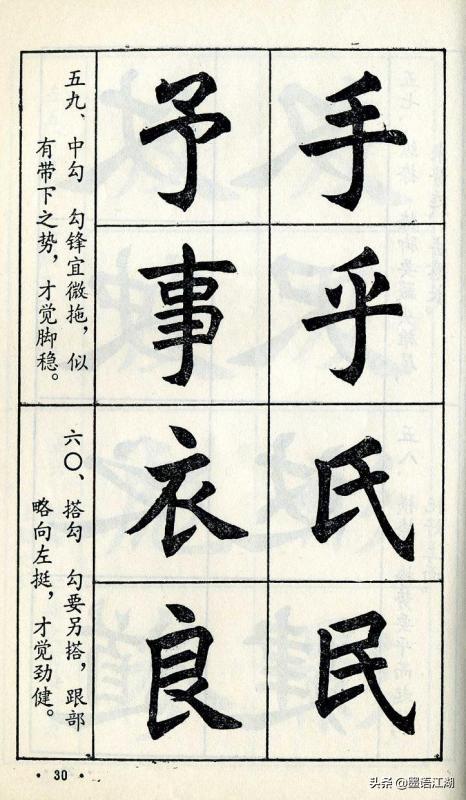 手乎氏民
予事衣良
五九、中勾 勾锋宜微拖，似
有带下之势，才觉脚稳。
六〇、搭勾 勾要另搭，跟部
略向左挺，才觉劲健。
·30·
头条@墨语江湖